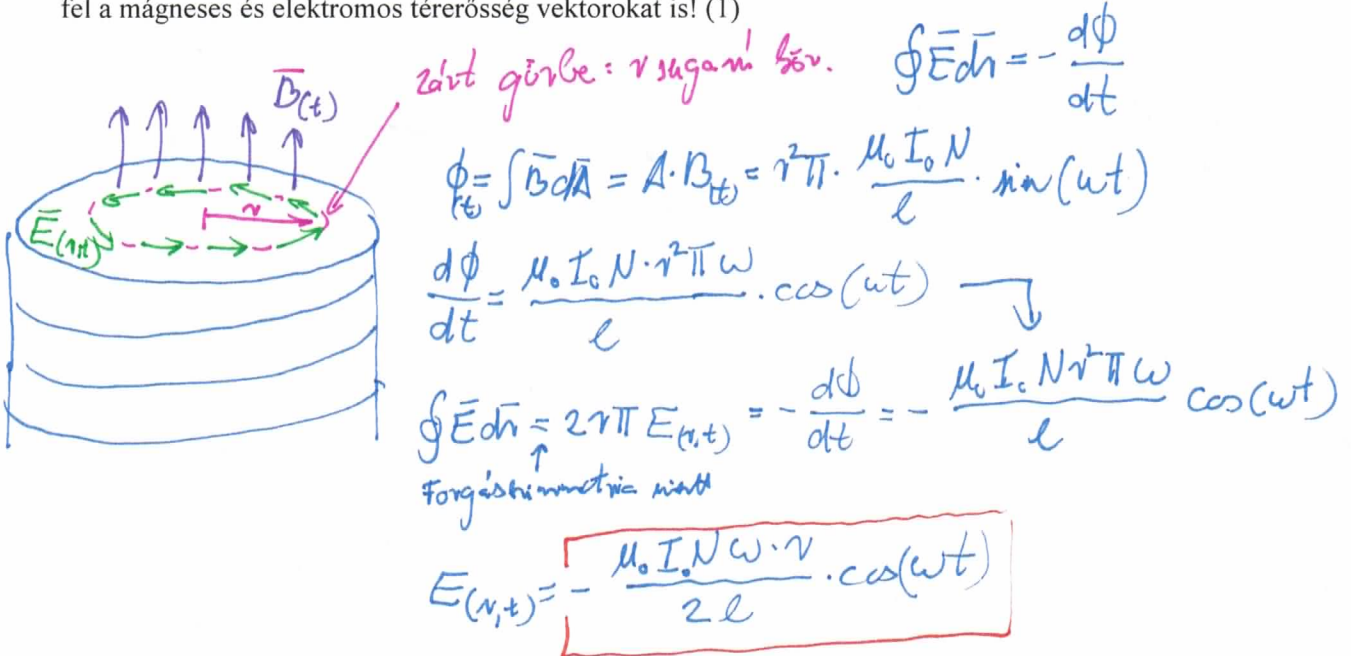 fel a mágneses és elektromos térerősség vektorokat is! (1)
zárt görbe: r sugarú kör.
∮E̅dr̅ = - dϕ/dt
B̅(t)
ϕ(t) = ∫B̅dA̅ = A·B(t) = r²π · μ₀I₀N/l · sin(ωt)
r
E̅(r,t)
dϕ/dt = μ₀I₀N·r²πω/l · cos(ωt)
∮E̅dr̅ = 2rπE(r,t) = - dϕ/dt = - μ₀I₀Nr²πω/l cos(ωt)
↑
Forgásszimmetria miatt
E(r,t) = - μ₀I₀Nω·r/2l · cos(ωt)